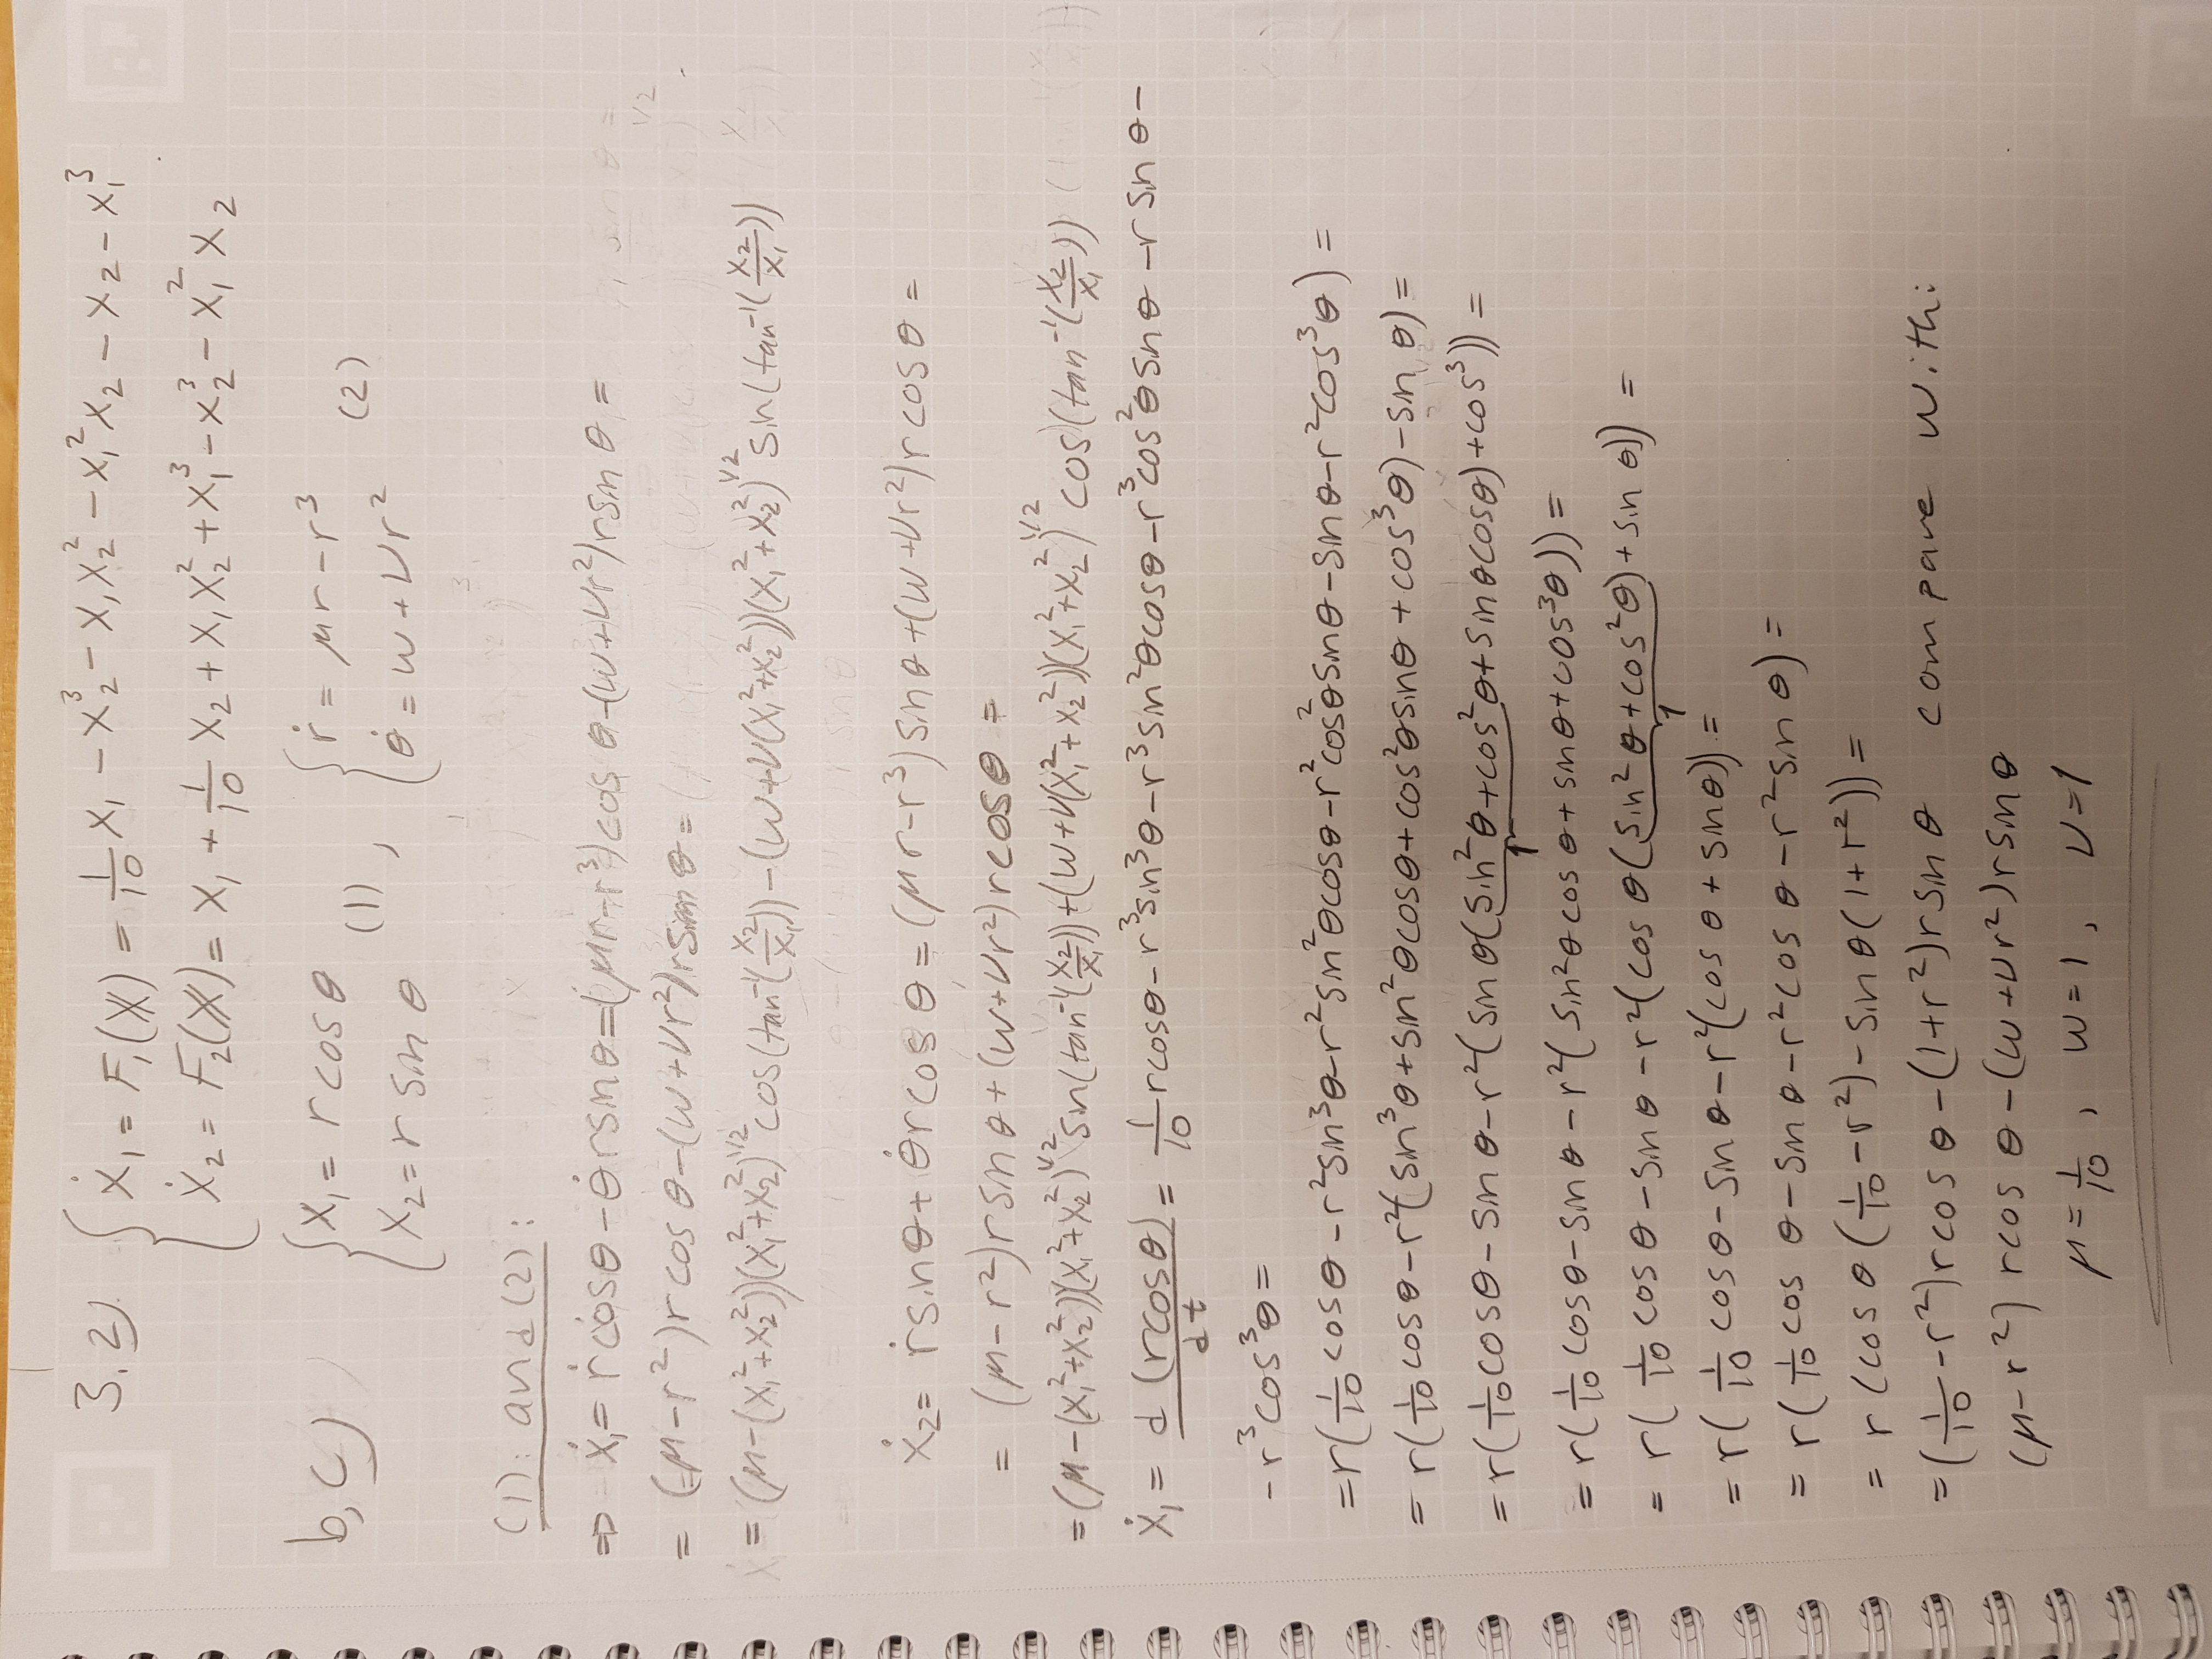 3.2) { ẋ₁ = F₁(X) = 1/10 x₁ − x₂³ − x₁x₂² − x₁²x₂ − x₂ − x₁³
{ ẋ₂ = F₂(X) = x₁ + 1/10 x₂ + x₁x₂² + x₁³ − x₂³ − x₁²x₂
b,c) { x₁ = r cos θ (1), { ṙ = μr − r³ (2)
{ x₂ = r sin θ { θ̇ = w + νr²
(1): and (2):
⇒ ẋ₁ = ṙ cos θ − θ̇ r sin θ = (μr − r³) cos θ − (w + νr²) r sin θ =
= (μ − r²) r cos θ − (w + νr²) r sin θ =
= (μ − (x₁² + x₂²))(x₁² + x₂²)^1/2 cos(tan⁻¹(x₂/x₁)) − (w + ν(x₁² + x₂²))(x₁² + x₂²)^1/2 sin(tan⁻¹(x₂/x₁))
ẋ₂ = ṙ sin θ + θ̇ r cos θ = (μr − r³) sin θ + (w + νr²) r cos θ =
= (μ − r²) r sin θ + (w + νr²) r cos θ =
= (μ − (x₁² + x₂²))(x₁² + x₂²)^1/2 sin(tan⁻¹(x₂/x₁)) + (w + ν(x₁² + x₂²))(x₁² + x₂²)^1/2 cos(tan⁻¹(x₂/x₁))
ẋ₁ = d(r cos θ)/dt = 1/10 r cos θ − r³ sin³ θ − r³ sin² θ cos θ − r³ cos² θ sin θ − r sin θ −
− r³ cos³ θ =
= r(1/10 cos θ − r² sin³ θ − r² sin² θ cos θ − r² cos² θ sin θ − sin θ − r² cos³ θ) =
= r(1/10 cos θ − r²(sin³ θ + sin² θ cos θ + cos² θ sin θ + cos³ θ) − sin θ) =
= r(1/10 cos θ − sin θ − r²(sin θ(sin² θ + cos² θ + sin θ cos θ) + cos³)) =
1
= r(1/10 cos θ − sin θ − r²(sin² θ cos θ + sin θ + cos³ θ)) =
= r(1/10 cos θ − sin θ − r²(cos θ(sin² θ + cos² θ) + sin θ)) =
1
= r(1/10 cos θ − sin θ − r²(cos θ + sin θ)) =
= r(1/10 cos θ − sin θ − r² cos θ − r² sin θ) =
= r(cos θ(1/10 − r²) − sin θ(1 + r²)) =
= (1/10 − r²) r cos θ − (1 + r²) r sin θ compare with:
(μ − r²) r cos θ − (w + νr²) r sin θ
μ = 1/10, w = 1, ν = 1